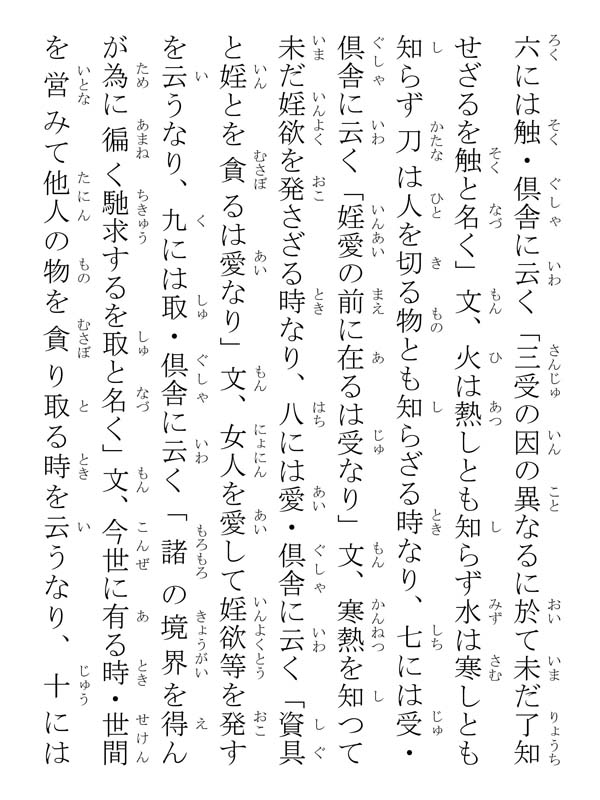 六には触・倶舎に云く「三受の因の異なるに於て未だ了知
せざるを触と名く」文、火は熱しとも知らず水は寒しとも
知らず刀は人を切る物とも知らざる時なり、七には受・
倶舎に云く「婬愛の前に在るは受なり」文、寒熱を知つて
未だ婬欲を発さざる時なり、八には愛・倶舎に云く「資具
と婬とを貪るは愛なり」文、女人を愛して婬欲等を発す
を云うなり、九には取・倶舎に云く「諸の境界を得ん
が為に徧く馳求するを取と名く」文、今世に有る時・世間
を営みて他人の物を貪り取る時を云うなり、十には